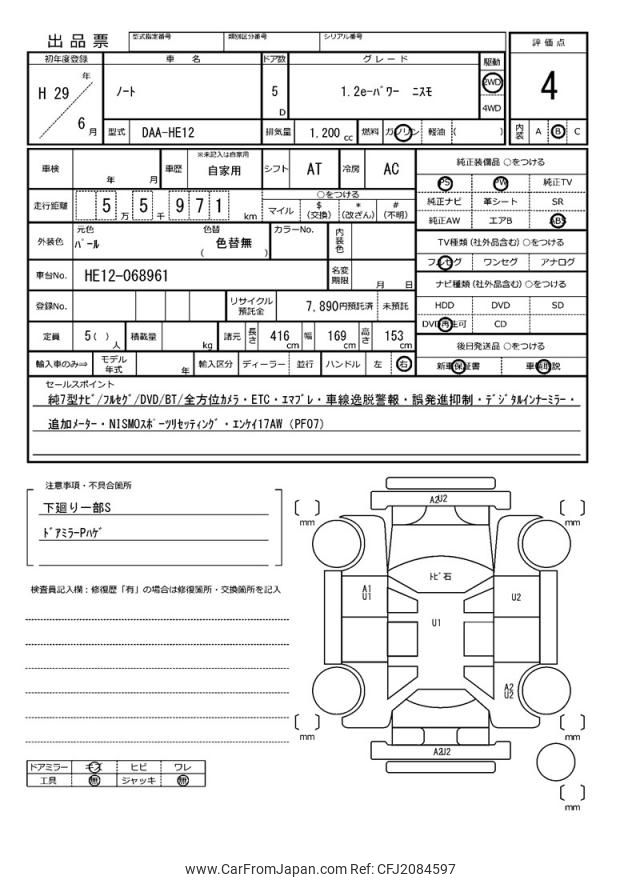 出品票
型式指定番号 類別区分番号 シリアル番号
評価点
4
内装 A B C
初年度登録 車名 ドア数 グレード 駆動
H 29 年 6 月
ノート 5 D 1.2e-パワー ニスモ 2WD 4WD
型式 DAA-HE12 排気量 1,200 cc 燃料 ガソリン 軽油 ( )
車検 年 月 車歴 ※未記入は自家用 自家用 シフト AT 冷房 AC
走行距離 5 万 5 千 9 7 1 km
○をつける
マイル $ (交換) * (改ざん) # (不明)
外装色 元色 パール 色替 ( 色替無 ) カラーNo. 内装色
車台No. HE12-068961 名変期限 月 日
登録No. リサイクル預託金 7,890円預託済 未預託
定員 5 ( ) 人 積載量 kg 諸元 長さ 416 cm 幅 169 cm 高さ 153 cm
輸入車のみ⇒ モデル年式 年 輸入区分 ディーラー 並行 ハンドル 左 右
純正装備品 ○をつける
PS PW 純正TV
純正ナビ 革シート SR
純正AW エアB ABS
TV種類 (社外品含む) ○をつける
フルセグ ワンセグ アナログ
ナビ種類 (社外品含む) ○をつける
HDD DVD SD
DVD再生可 CD
後日発送品 ○をつける
新車保証書 車輌取説
セールスポイント
純7型ナビ/フルセグ/DVD/BT/全方位カメラ・ETC・エマブレ・車線逸脱警報・誤発進抑制・デジタルインナーミラー・
追加メーター・NISMOスポーツリセッティング・エンケイ17AW (PF07)
注意事項・不具合箇所
下廻り一部S
ドアミラーPハゲ
検査員記入欄：修復歴「有」の場合は修復箇所・交換箇所を記入
A2U2
mm
mm
トビ石
A1
U1
U1
U2
A2
U2
mm
mm
A2U2
mm
ドアミラー キズ ヒビ ワレ
工具 無 ジャッキ 無
www.CarFromJapan.com Ref: CFJ2084597